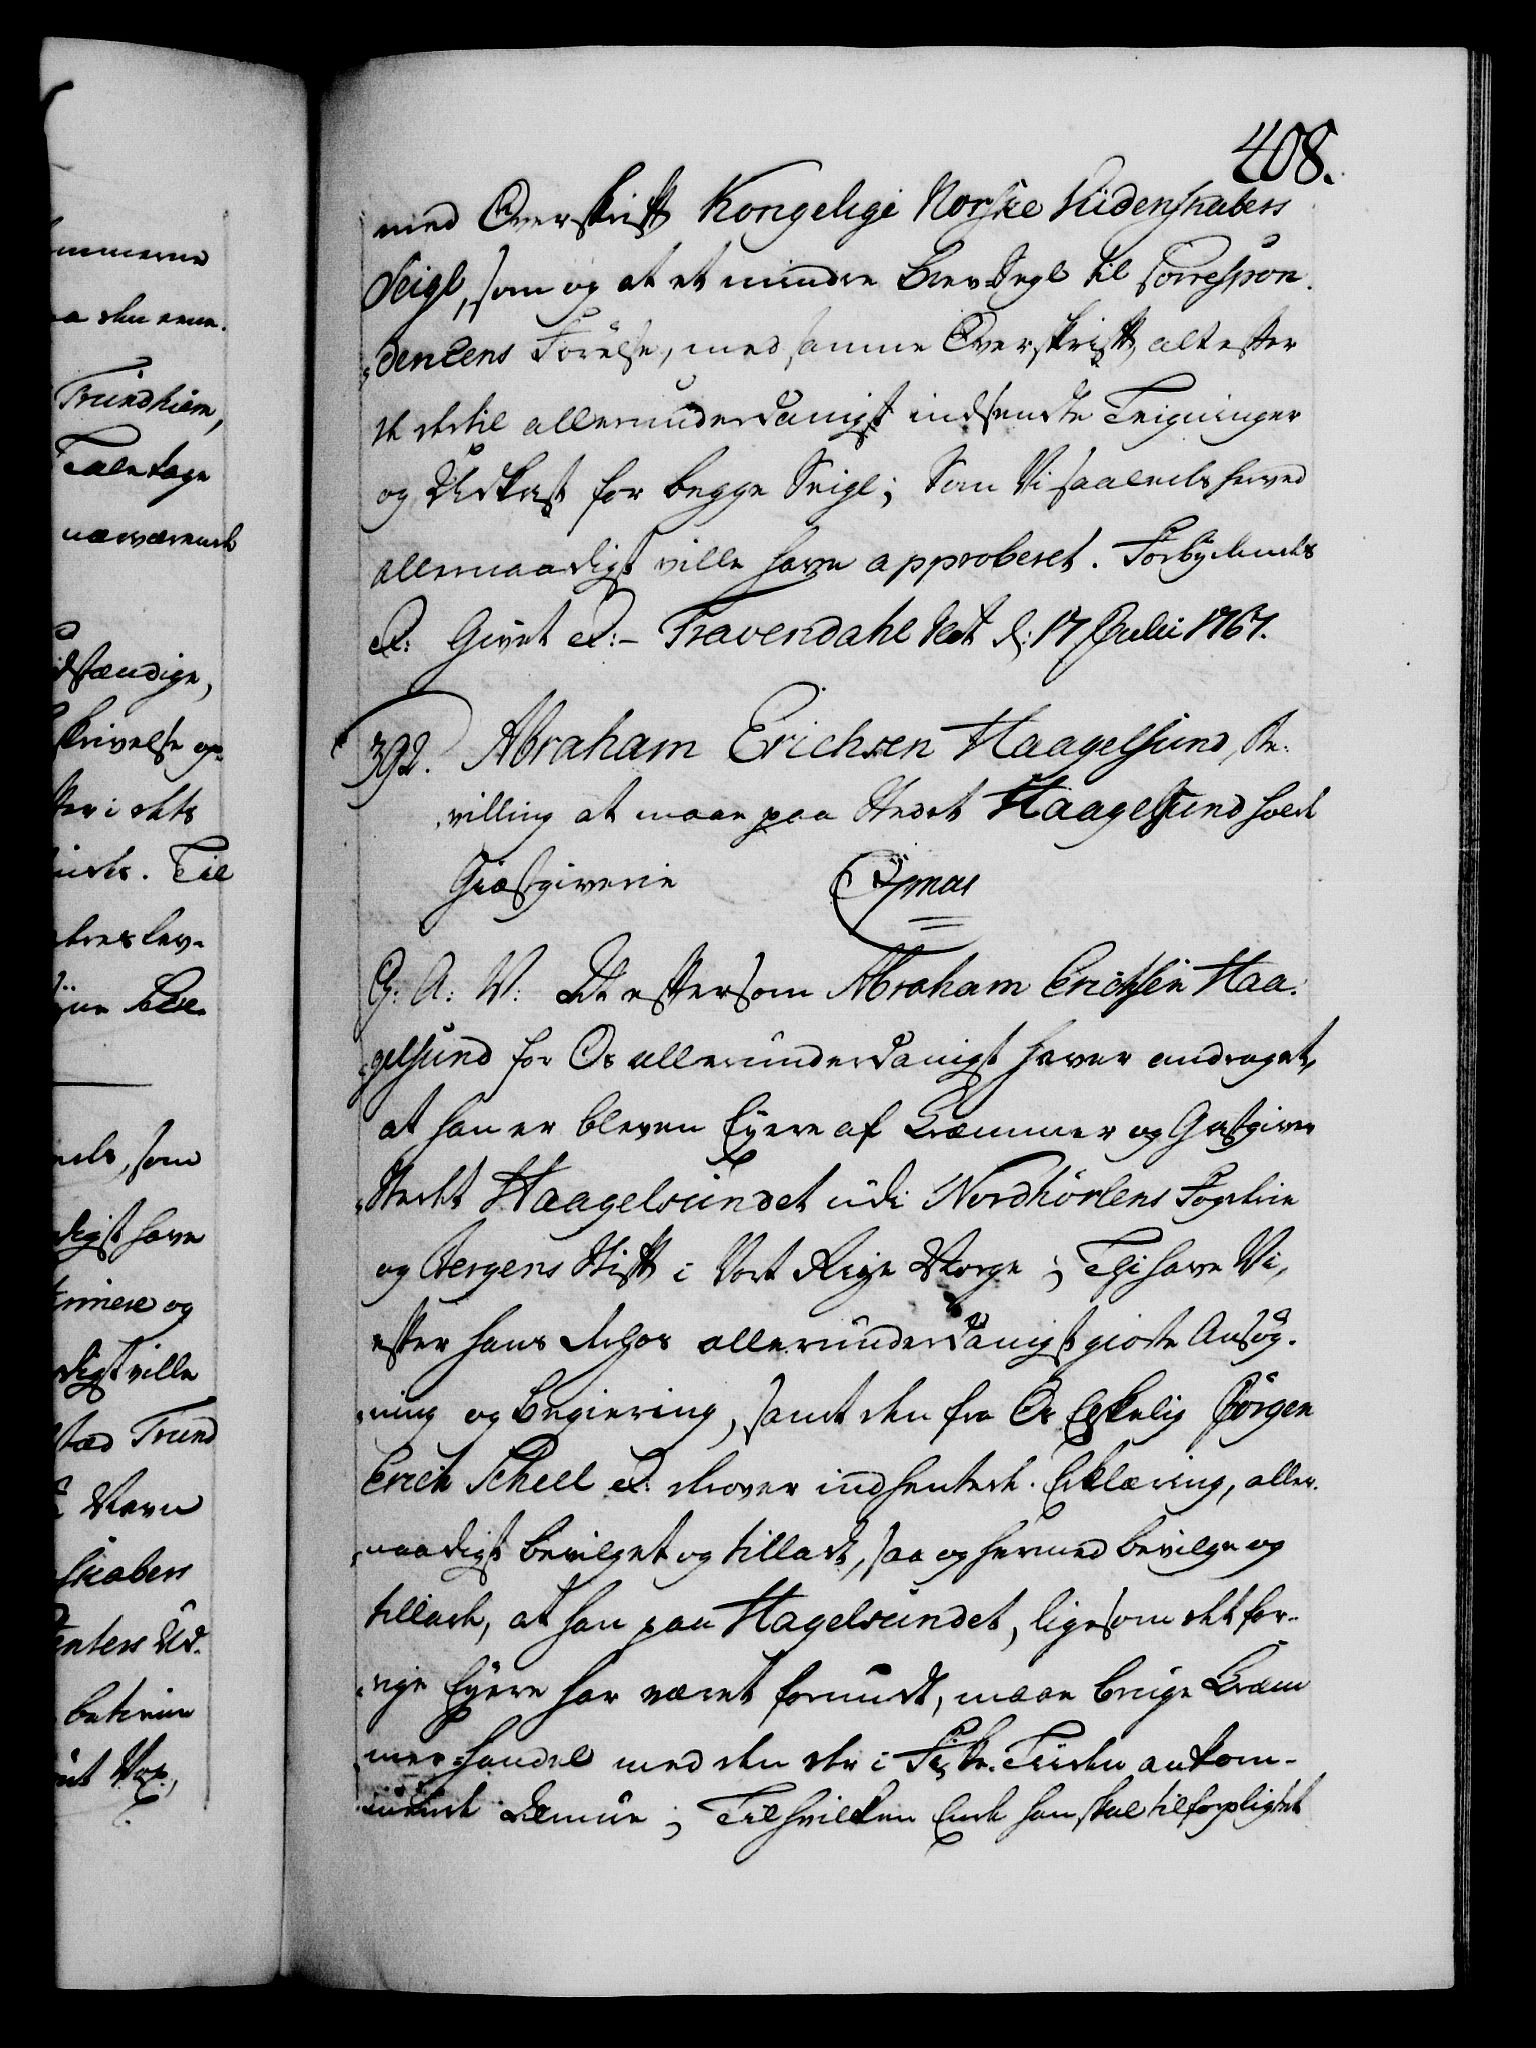 408.
med Overskrift Kongelige Norske Videnskabers
Seigl, som og at et mindre Brev-Segl til Correspon-
dencens Förelse, med samme Overskrift, alt efter
de dertil allerunderdanigst indsendte Teigninger
og Udkast for begge Seigl; Som Vi saaledes herved
allernaadigst ville have approberet. Forbydendes
&: Givet &:- Travendahl Slot d: 17 Julii 1767.
392. Abraham Erichsen Haagelsund, Be-
villing at maae paa Stedet Haagelsund holde
Giæstgiverie
G: A: V: At eftersom Abraham Erichsen Haa-
gelsund for Os allerunderdanigst haver andraget,
at han er bleven Eyere af Kræmmer og Gastgiver
Stedet Haagelsundet udi Nordhörlens Fogderie
og Bergens Stift i Vort Rige Norge; Thi have Vi,
efter hans derhos allerunderdanigst giorte Ansög-
ning og Begiering, samt den fra Os Elskelig Jörgen
Erich Schell &: derover indhentede Erklæring, aller-
naadigst bevilget og tilladt, saa og hermed bevilge og
tillade, at han paa Hagelsundet, ligesom det for-
rige Eyere har været forundt, maae bruge Kræm
mer-Handel med den der i Fiske-Tiden ankom-
mende Almue; Til hvilken Ende han skal tilforpligtet
mmerne
Trundhiem,
Tale tage
nærværende
skrivelse og
ster i dets
Til
som
digst have
og
digst ville
Trund
Navn
skabers